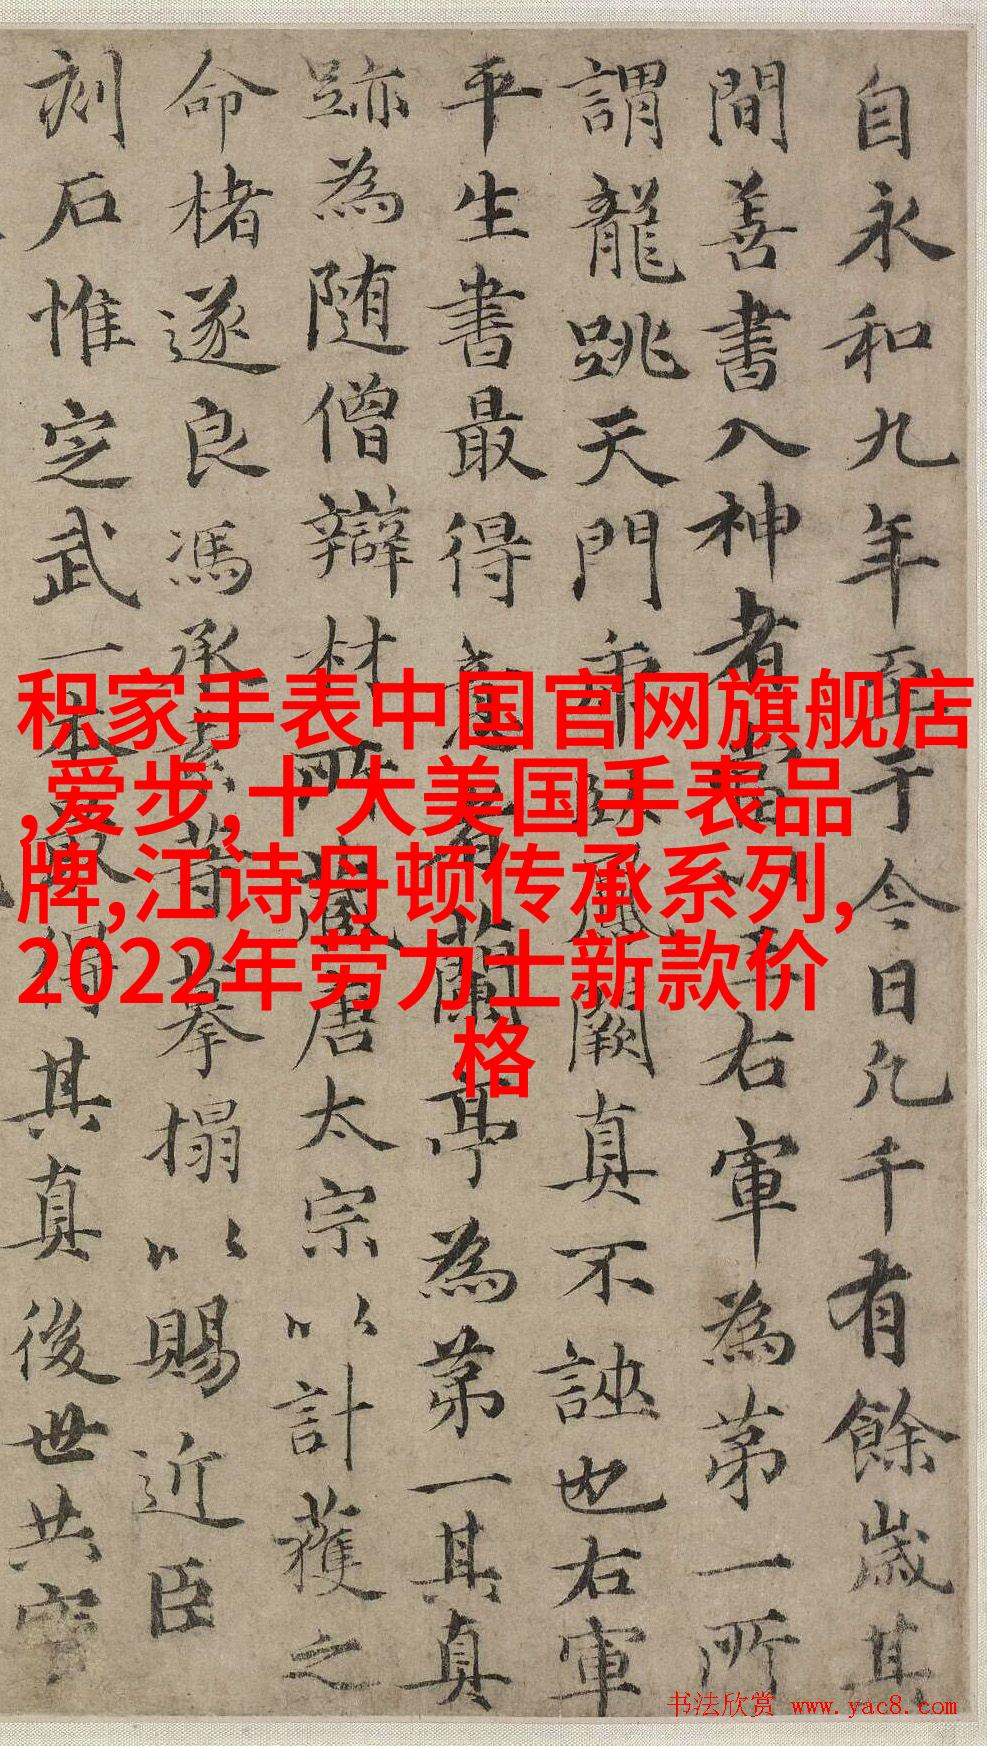 自永和九年至于今日凡千有餘歲其
間善書入神者當以王右軍為第一所
謂龍跳天門虎臥鳳闕真不誣也右軍
平生書最得意者蘭亭為第一其真
跡為隨僧辯材所藏唐太宗以計獲之
命楮遂良馮承素摹搨以賜近臣
刻石惟定武一本得其真後世共寶
积家手表中国官网旗舰店
,爱步,十大美国手表品
牌,江诗丹顿传承系列,
2022年劳力士新款价
格
书法欣赏 www.yac8.com